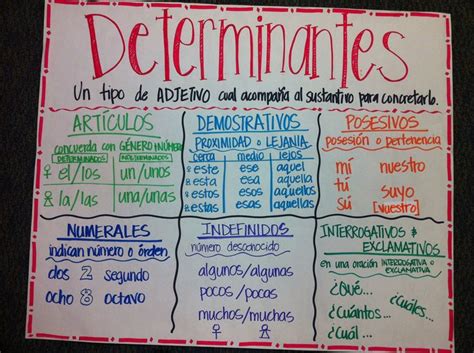 Determinantes
Un tipo de ADJETIVO cual acompaña al sustantivo para concretarlo.
ARTÍCULOS
concuerda con GÉNERO/NÚMERO
DETERMINADOS INDETERMINADOS
el/los un/unos
la/las una/unas
DEMOSTRATIVOS
PROXIMIDAD o LEJANÍA
cerca medio lejos
este ese aquel
esta esa aquella
estos esos aquellos
estas esas aquellas
POSESIVOS
posesión o pertenencia
mi nuestro
tú suyo
sú [vuestro]
NUMERALES
indican número o órden
dos 2 segundo
ocho 8 octavo
INDEFINIDOS
número desconocido
algunos/algunas
pocos/pocas
muchos/muchas
INTERROGATIVOS &
EXCLAMATIVOS
en una oración INTERROGATIVA o
EXCLAMATIVA
¿Qué...
¿Cuáles...
¿Cuántos...
¿Cuál...